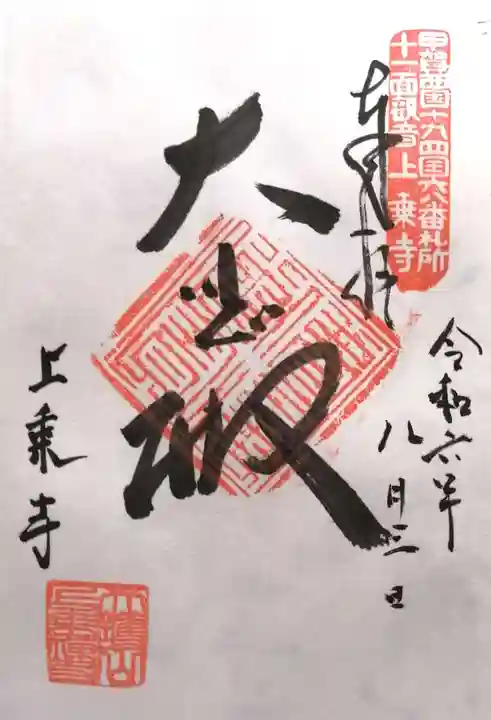 甲賀西国十九四国六八番札所
十一面観音上乗寺
奉拝
大悲殿
令和六年
八月三日
上乗寺